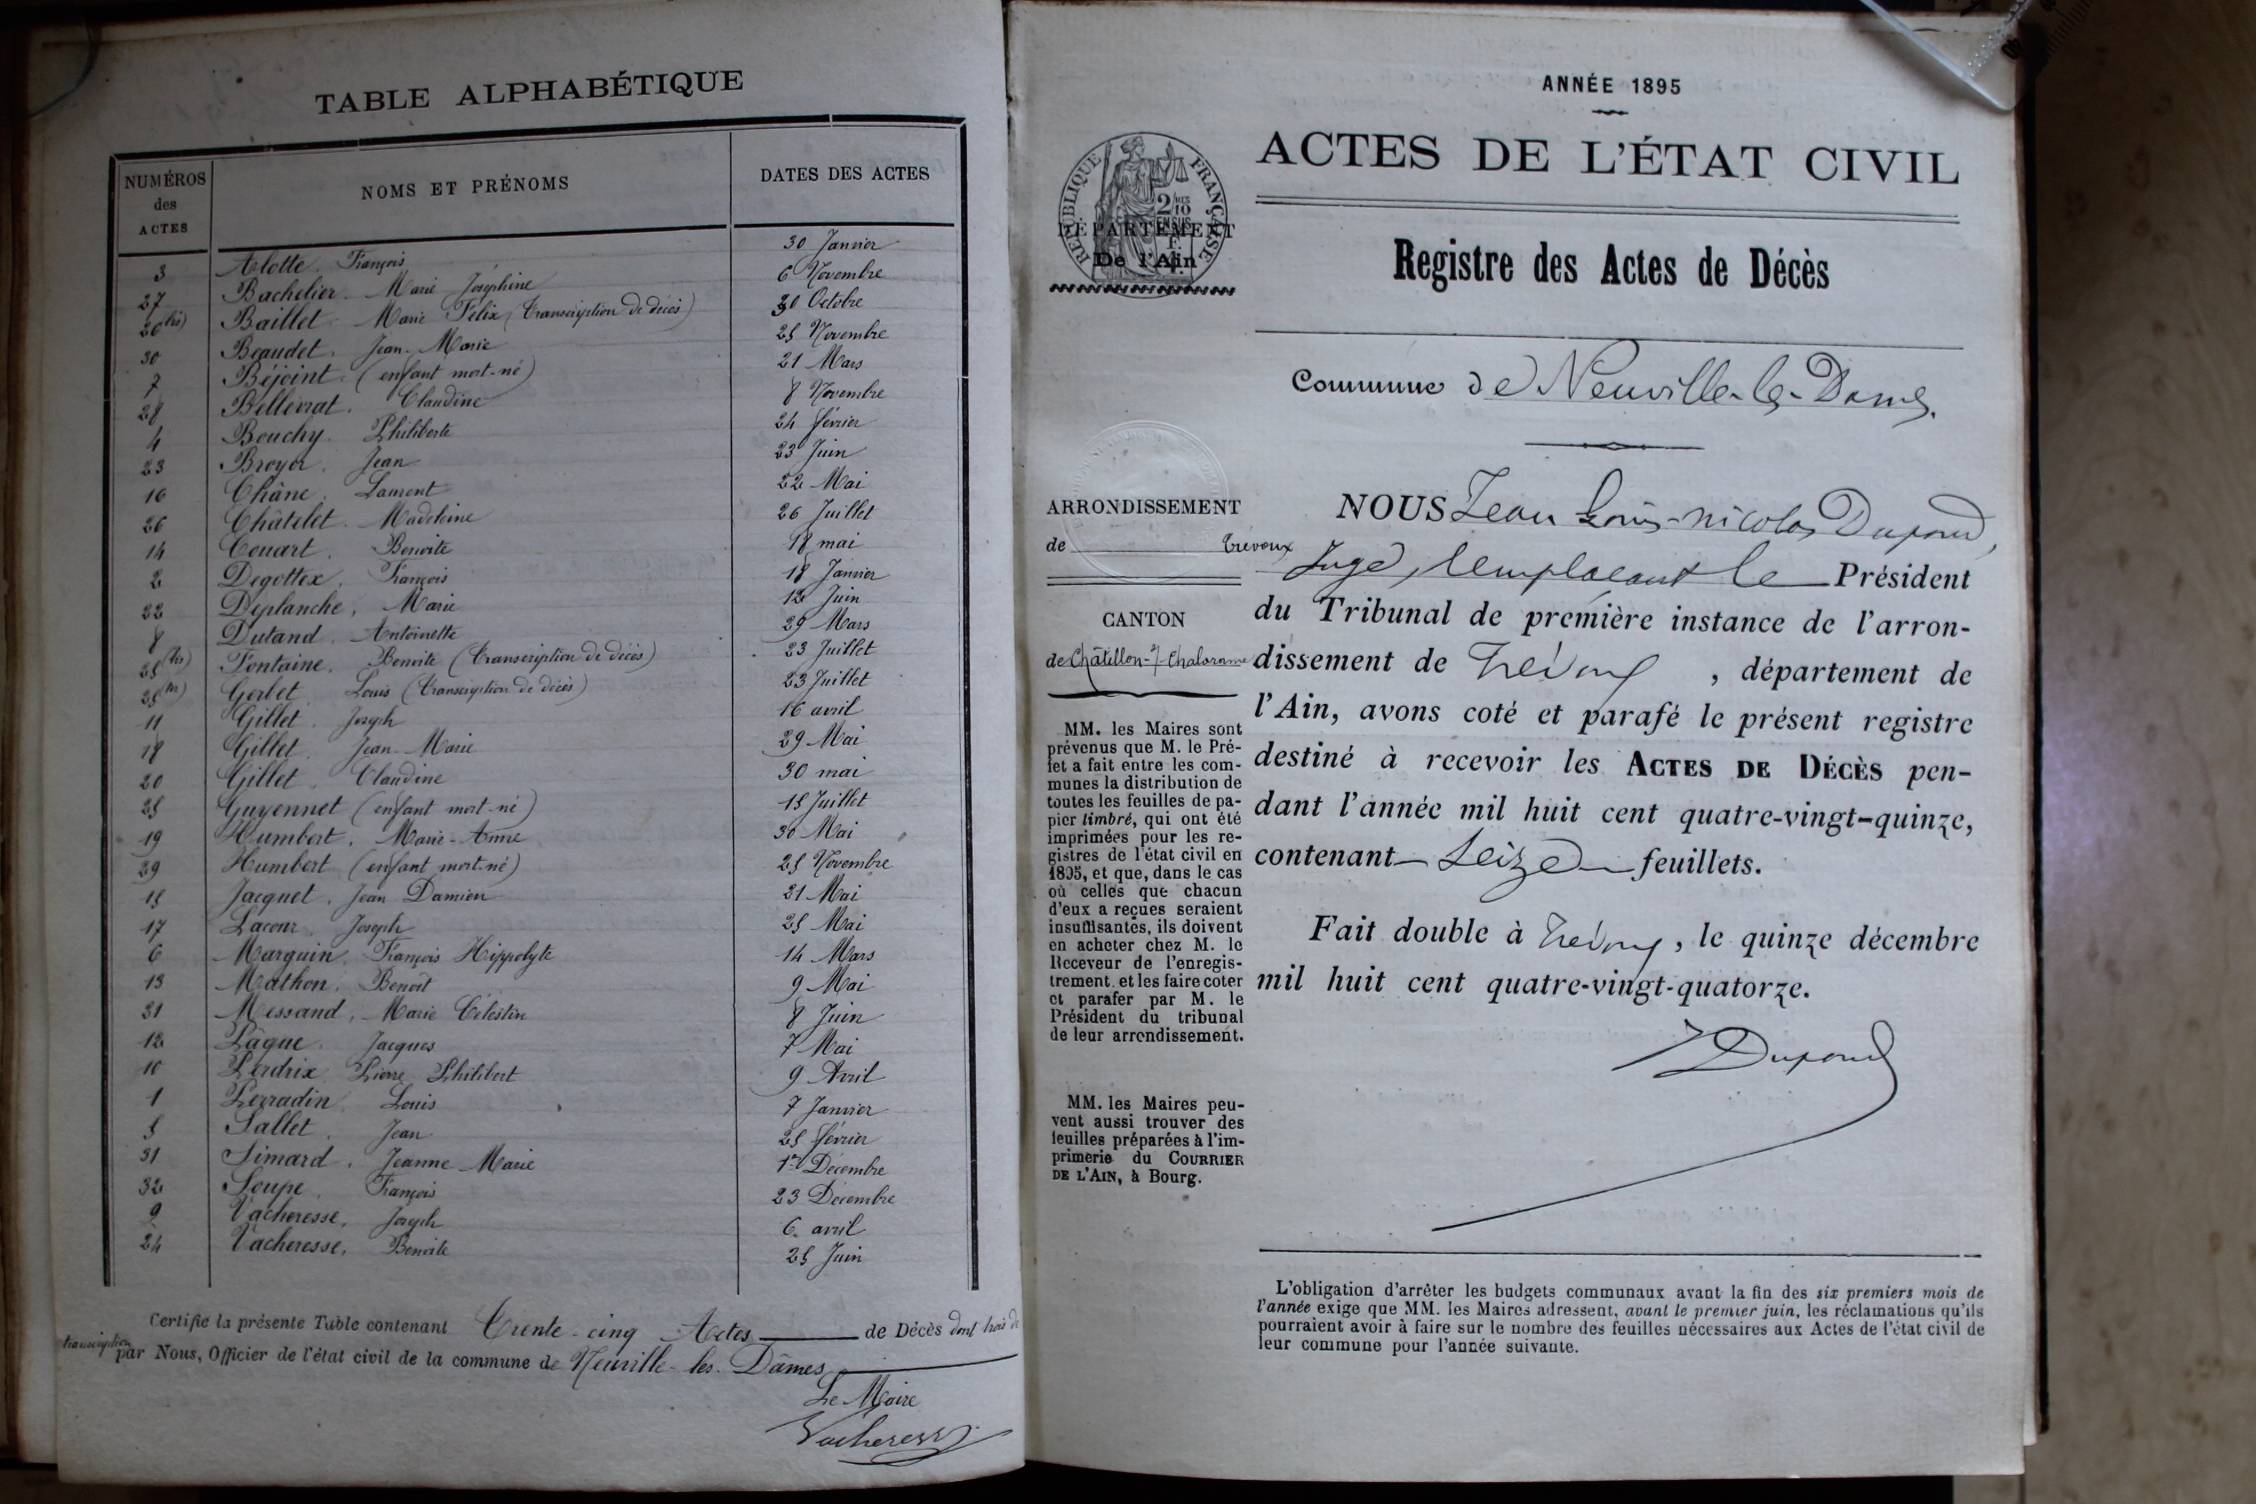 TABLE ALPHABÉTIQUE
NUMÉROS des ACTES NOMS ET PRÉNOMS DATES DES ACTES
3 Alotte. François 30 Janvier
27 Bachelier. Marie Joséphine 6 Novembre
26 (bis) Baillet. Marie Félix (Transcription de décès) 30 Octobre
30 Beaudet. Jean-Marie 25 Novembre
7 Béjoint. (enfant mort-né) 21 Mars
28 Bellevrat. Claudine 8 Novembre
4 Bouchy. Philiberte 24 février
23 Broyer. Jean 23 Juin
16 Châne. Laurent 22 Mai
26 Châtelet. Madeleine 26 Juillet
14 Couart. Benoite 18 mai
2 Degottex. François 18 Janvier
22 Deplanche, Marie 12 Juin
8 Dutand. Antoinette 29 Mars
25 (bis) Fontaine. Benoite (Transcription de décès) 23 Juillet
25 (ter) Gerbet. Louis (Transcription de décès) 23 Juillet
11 Gillet. Joseph 16 avril
18 Gillet. Jean-Marie 29 Mai
20 Gillet. Claudine 30 mai
25 Guyennet (enfant mort-né) 15 Juillet
19 Humbert. Marie-Anne 30 Mai
29 Humbert (enfant mort-né) 25 Novembre
15 Jacquet. Jean Damien 21 Mai
17 Lacour. Joseph 25 Mai
6 Marguin. François Hippolyte 14 Mars
13 Mathon. Benoît 9 Mai
21 Messand, Marie Célestin 8 Juin
12 Pâque. Jacques 7 Mai
10 Perdrix. Pierre Philibert 9 Avril
1 Perradin. Louis 7 Janvier
5 Sallet. Jean 25 février
31 Simard. Jeanne Marie 1er Décembre
32 Soupe. François 23 Décembre
9 Vacheresse, Joseph 6 avril
24 Vacheresse, Benoite 25 Juin
Certifié la présente Table contenant Trente-cinq Actes de Décès dont trois de
transcription par Nous, Officier de l'état civil de la commune de Neuville-les-Dâmes
Le Maire
Vacheresse
ANNÉE 1895
ACTES DE L'ÉTAT CIVIL
RÉPUBLIQUE FRANÇAISE
DÉPARTEMENT
De l'Ain
Registre des Actes de Décès
Commune de Neuville-les-Dames.
ARRONDISSEMENT
de Trévoux
CANTON
de Châtillon-s/-Chalaronne
MM. les Maires sont
prévenus que M. le Pré-
fet a fait entre les com-
munes la distribution de
toutes les feuilles de pa-
pier timbré, qui ont été
imprimées pour les re-
gistres de l'état civil en
1895, et que, dans le cas
où celles que chacun
d'eux a reçues seraient
insuffisantes, ils doivent
en acheter chez M. le
Receveur de l'enregis-
trement, et les faire coter
et parafer par M. le
Président du tribunal
de leur arrondissement.
MM. les Maires peu-
vent aussi trouver des
feuilles préparées à l'im-
primerie du COURRIER
DE L'AIN, à Bourg.
NOUS Jean Louis-Nicolas Dupond,
Juge, remplaçant le Président
du Tribunal de première instance de l'arron-
dissement de Trévoux, département de
l'Ain, avons coté et parafé le présent registre
destiné à recevoir les ACTES DE DÉCÈS pen-
dant l'année mil huit cent quatre-vingt-quinze,
contenant Seize feuillets.
Fait double à Trévoux, le quinze décembre
mil huit cent quatre-vingt-quatorze.
Dupond
L'obligation d'arrêter les budgets communaux avant la fin des six premiers mois de
l'année exige que MM. les Maires adressent, avant le premier juin, les réclamations qu'ils
pourraient avoir à faire sur le nombre des feuilles nécessaires aux Actes de l'état civil de
leur commune pour l'année suivante.